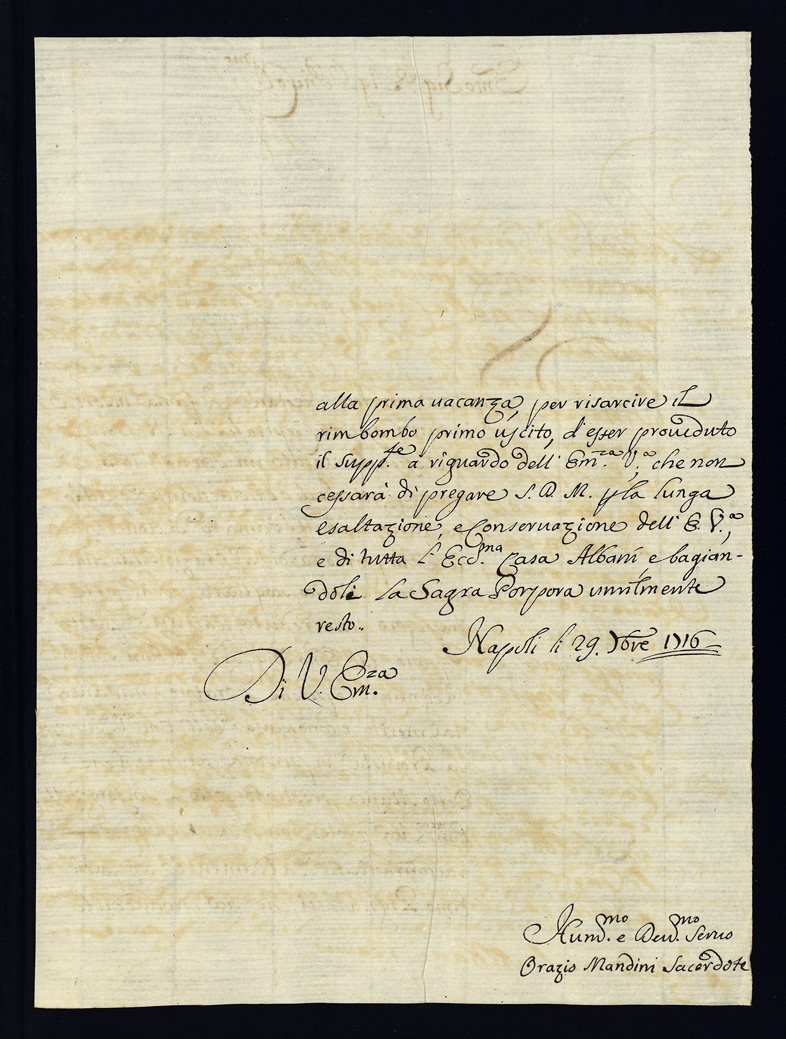 alla prima vacanza, per risarcire il
rimbombo primo uscito, d'esser proveduto
il supp.te a riguardo dell' Em.za V.a che non
cessarà di pregare S. D. M. p la lunga
esaltazione, e Conservazione dell' E. V.a,
e di tutta l' Ecc.ma Casa Albani, e bagian-
doli la Sagra Porpora umilmente
resto..
Napoli li 29. 1716
Di V. Em.za
Hum.mo e Dev.mo Servo
Orazio Mandini Sacerdote